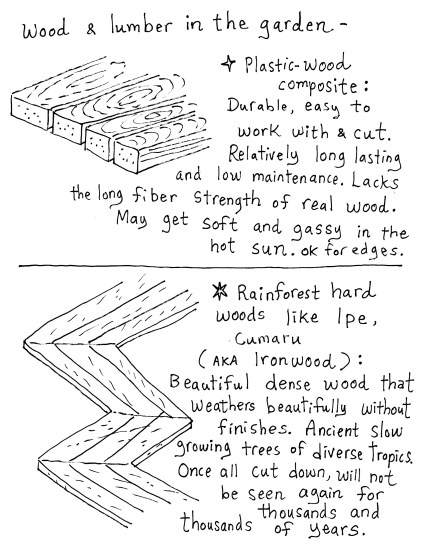 Wood & lumber in the garden -
✦ Plastic-wood
composite:
Durable, easy to
work with & cut.
Relatively long lasting
and low maintenance. Lacks
the long fiber strength of real wood.
May get soft and gassy in the
hot sun. ok for edges.
✶ Rainforest hard
woods like Ipe,
Cumaru
(AKA Ironwood):
Beautiful dense wood that
weathers beautifully without
finishes. Ancient slow
growing trees of diverse tropics.
Once all cut down, will not
be seen again for
thousands and
thousands of years.